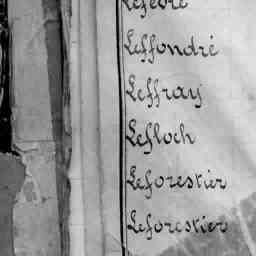 Lefèvre
Leffondré
Leffray
Lefloch
Leforestier
Leforestier